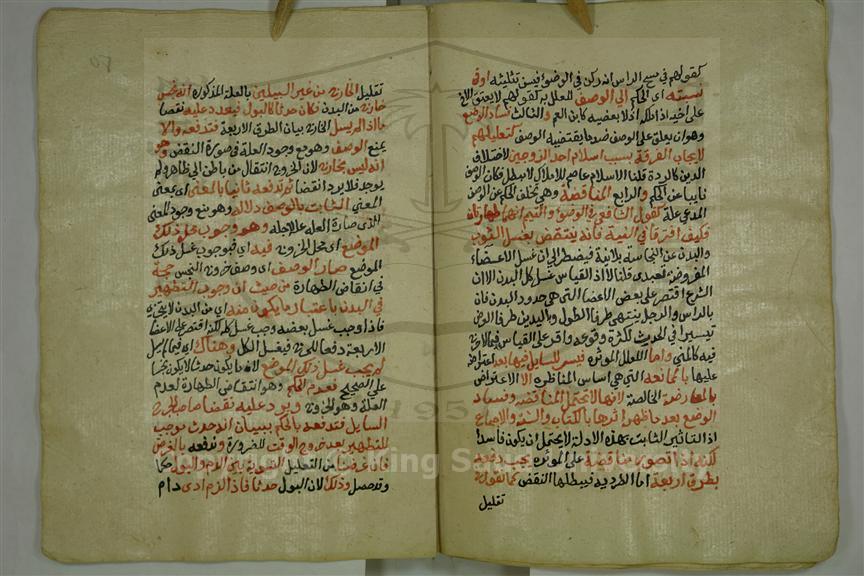 كقولهم في مسح الراس انه ركن في الوضوء فيسن تثليثه او في
نسبته اي الحكم الي الوصف المعلل به كقولهم لا يعتق الاخ
على اخيه اذ الحكم اذ لا بعضيه كابن العم والثالث فساد الوضع
وهو ان يعلق على الوصف ضد ما يقتضيه الوصف كتعليلهم
لايجاب الفرقة بسبب اسلام احد الزوجين لاختلاف
الدين كالردة قلنا الاسلام عاصم للاملاك لا مبطل فكان الوصف
نابيا عن الحكم والرابع المناقضة وهي تخلف الحكم عن الوصف
المدعي علة كقول الشافعي في الوضوء والتيمم انهما طهارتان
فكيف افترقا في النية فانه ينتقض بغسل الثوب
والبدن عن النجاسة بلا نية فيضطر الى ان غسل الاعضاء
المفروضة تعبدي قلنا لا اذ القياس غسل كل البدن الا ان
الشرع اقتصر على بعض الاعضا التي هي حدود البدن فان
بالراس والرجل ينتهي طرفا الطول وباليدين طرفا العرض
تيسيرا في الحدث لكثرة وقوعه واقر على القياس فيما لا حرج
فيه كالمني واما العلل الموثره فليس للسايل فيها بعد
عليها بالممانعه التي هي اساس المناظره الا الاعتراض
بالمعارضة الخالصة لانها لا تحتمل المناقضه وفساد
الوضع بعد ما ظهر اثرها بالكتاب والسنة والاجماع
اذ التاثير الثابت بهذه الادلة لا يحتمل ان يكون فاسدا
لكنه اذا تصور مناقضة على الموثره يجب دفعه
بطرق اربعة اما الطرديه فيبطلها النقض كما نقول في
تعليل
تعليل الخارج من غير السبيلين بالعلة المذكورة انه نجس
خارج من البدن فكان حدثا كالبول فيورد عليه نقضا
ما اذا لم يسل الخارج بيان الطرق الاربعة فندفعه والا
بمنع الوصف وهو منع وجود العلة في صورة النقض وهو
انه ليس بخارج لان الخروج انتقال من باطن الى ظاهر ولم
يوجد فلا يرد نقضا ثم ندفعه ثانيا بالمعنى اي بمعنى
المعنى الثابت بالوصف دلالة وهو منع وجود المعنى
الذي صارت العلة علة لاجله وهو وجوب غسل ذلك
الموضع اي محل الخروج فيه اي فبوجوب غسل ذلك
الموضع صار الوصف اي وصف خروج النجس حجة
في انتقاض الطهارة من حيث ان وجوب التطهير
في البدن باعتبار ما يكون منه اي من البدن لا يتجزى
فاذا وجب غسل بعضه وجب غسل كله لكنه اقتصر على الاعضا
الاربعة دفعا للحرج في غسل الكل وهناك اي فيما لم يسل
لم يجب غسل ذلك الموضع لان ما يكون حدثا لا يكون نجسا
على الصحيح فعدم الحكم وهو انتقاض الطهارة لعدم
العلة وهو الخروج ويورد عليه نقضا صاحب الجرح
السايل فندفعه بالحكم ببيان انه حدث موجب
للتطهير بعد خروج الوقت للضرورة وندفعه بالغرض
فان غرضنا من التعليل التسوية بين الدم والبول حكما
وقد حصل وذلك لان البول حدث فاذا لزم اي دام